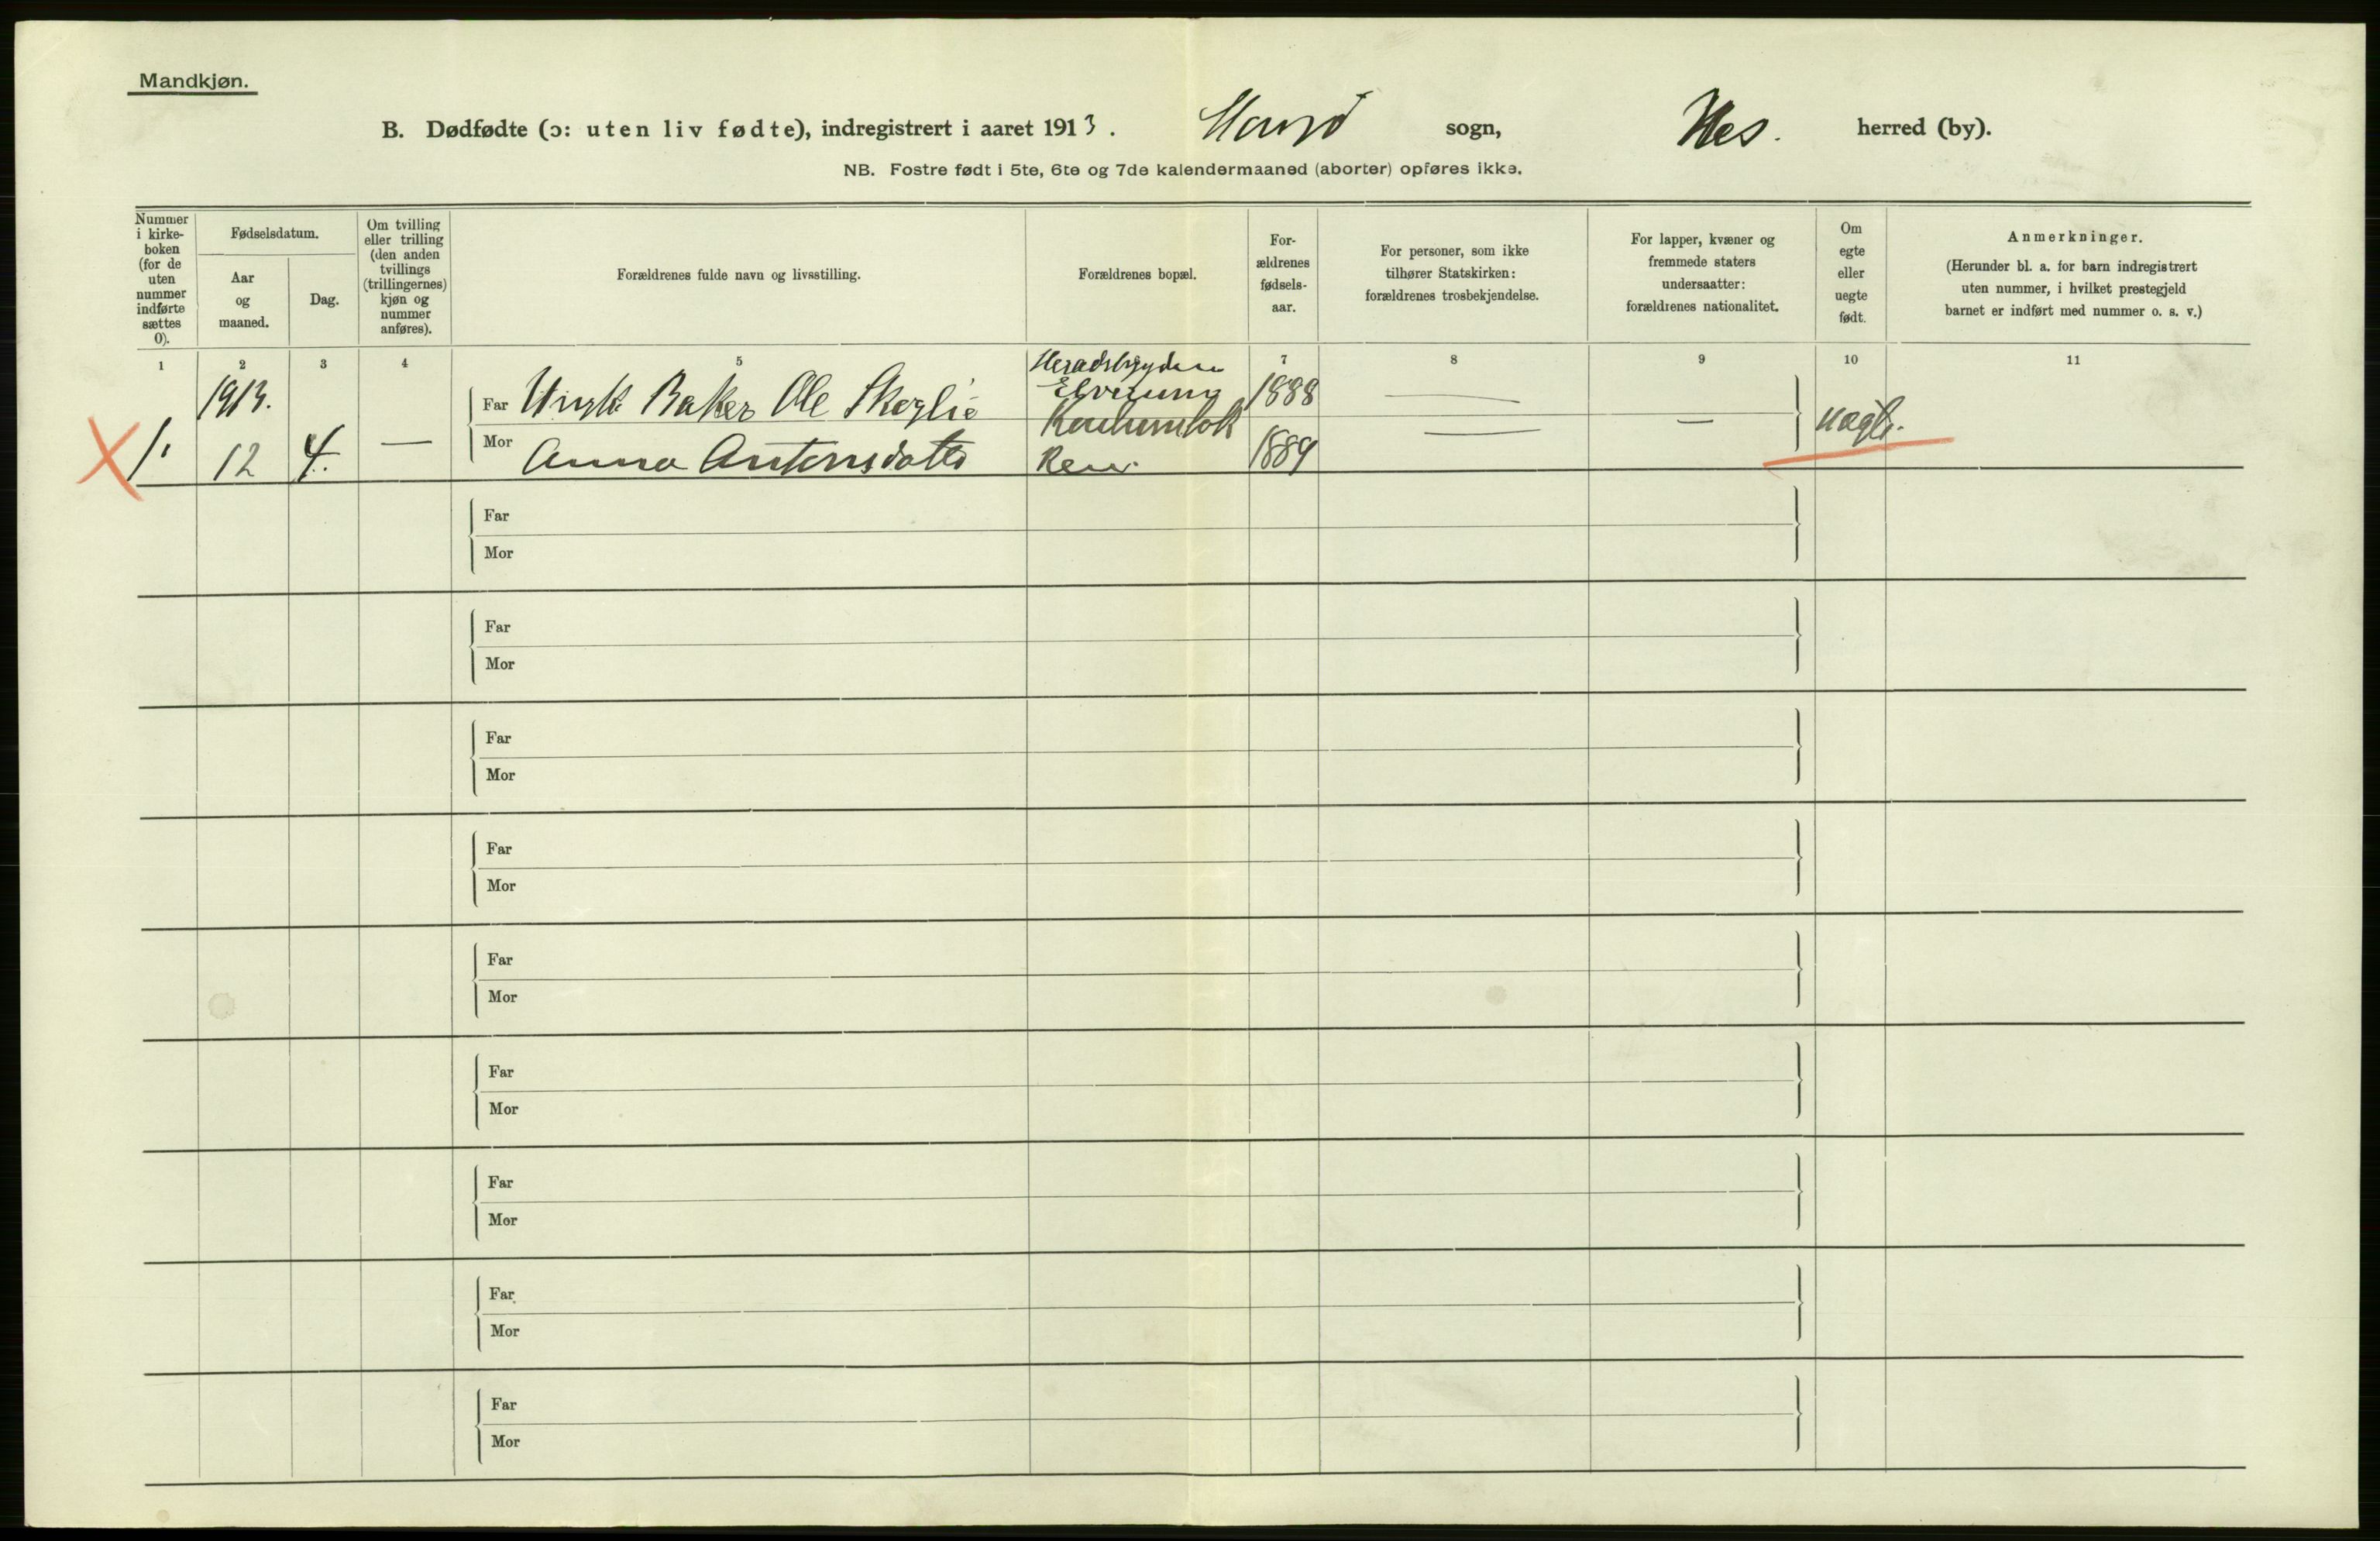 Mandkjøn.
B. Dødfødte (ɔ: uten liv fødte), indregistrert i aaret 1913. sogn, Nes. herred (by).
NB. Fostre født i 5te, 6te og 7de kalendermaaned (aborter) opføres ikke.
Nummer
i kirke-
boken
(for de
uten
nummer
indførte
sættes
0).
Fødselsdatum.
Aar
og
maaned.
Dag.
Om tvilling
eller trilling
(den anden
tvillings
(trillingernes)
kjøn og
nummer
anføres).
Forældrenes fulde navn og livsstilling.
Forældrenes bopæl.
For-
ældrenes
fødsels-
aar.
For personer, som ikke
tilhører Statskirken:
forældrenes trosbekjendelse.
For lapper, kvæner og
fremmede staters
undersaatter:
forældrenes nationalitet.
Om
egte
eller
uegte
født.
Anmerkninger.
(Herunder bl. a. for barn indregistrert
uten nummer, i hvilket prestegjeld
barnet er indført med nummer o. s. v.)
1 2 3 4 5 7 8 9 10 11
1913.
Heradsbygden
Far Ungk. Baker Ole Skoglie Elverum 1888 — —
X 1. 12 4. — Mor Anna Antonsdatter 1889 — uægte.
Far
Mor
Far
Mor
Far
Mor
Far
Mor
Far
Mor
Far
Mor
Far
Mor
Far
Mor
Far
Mor